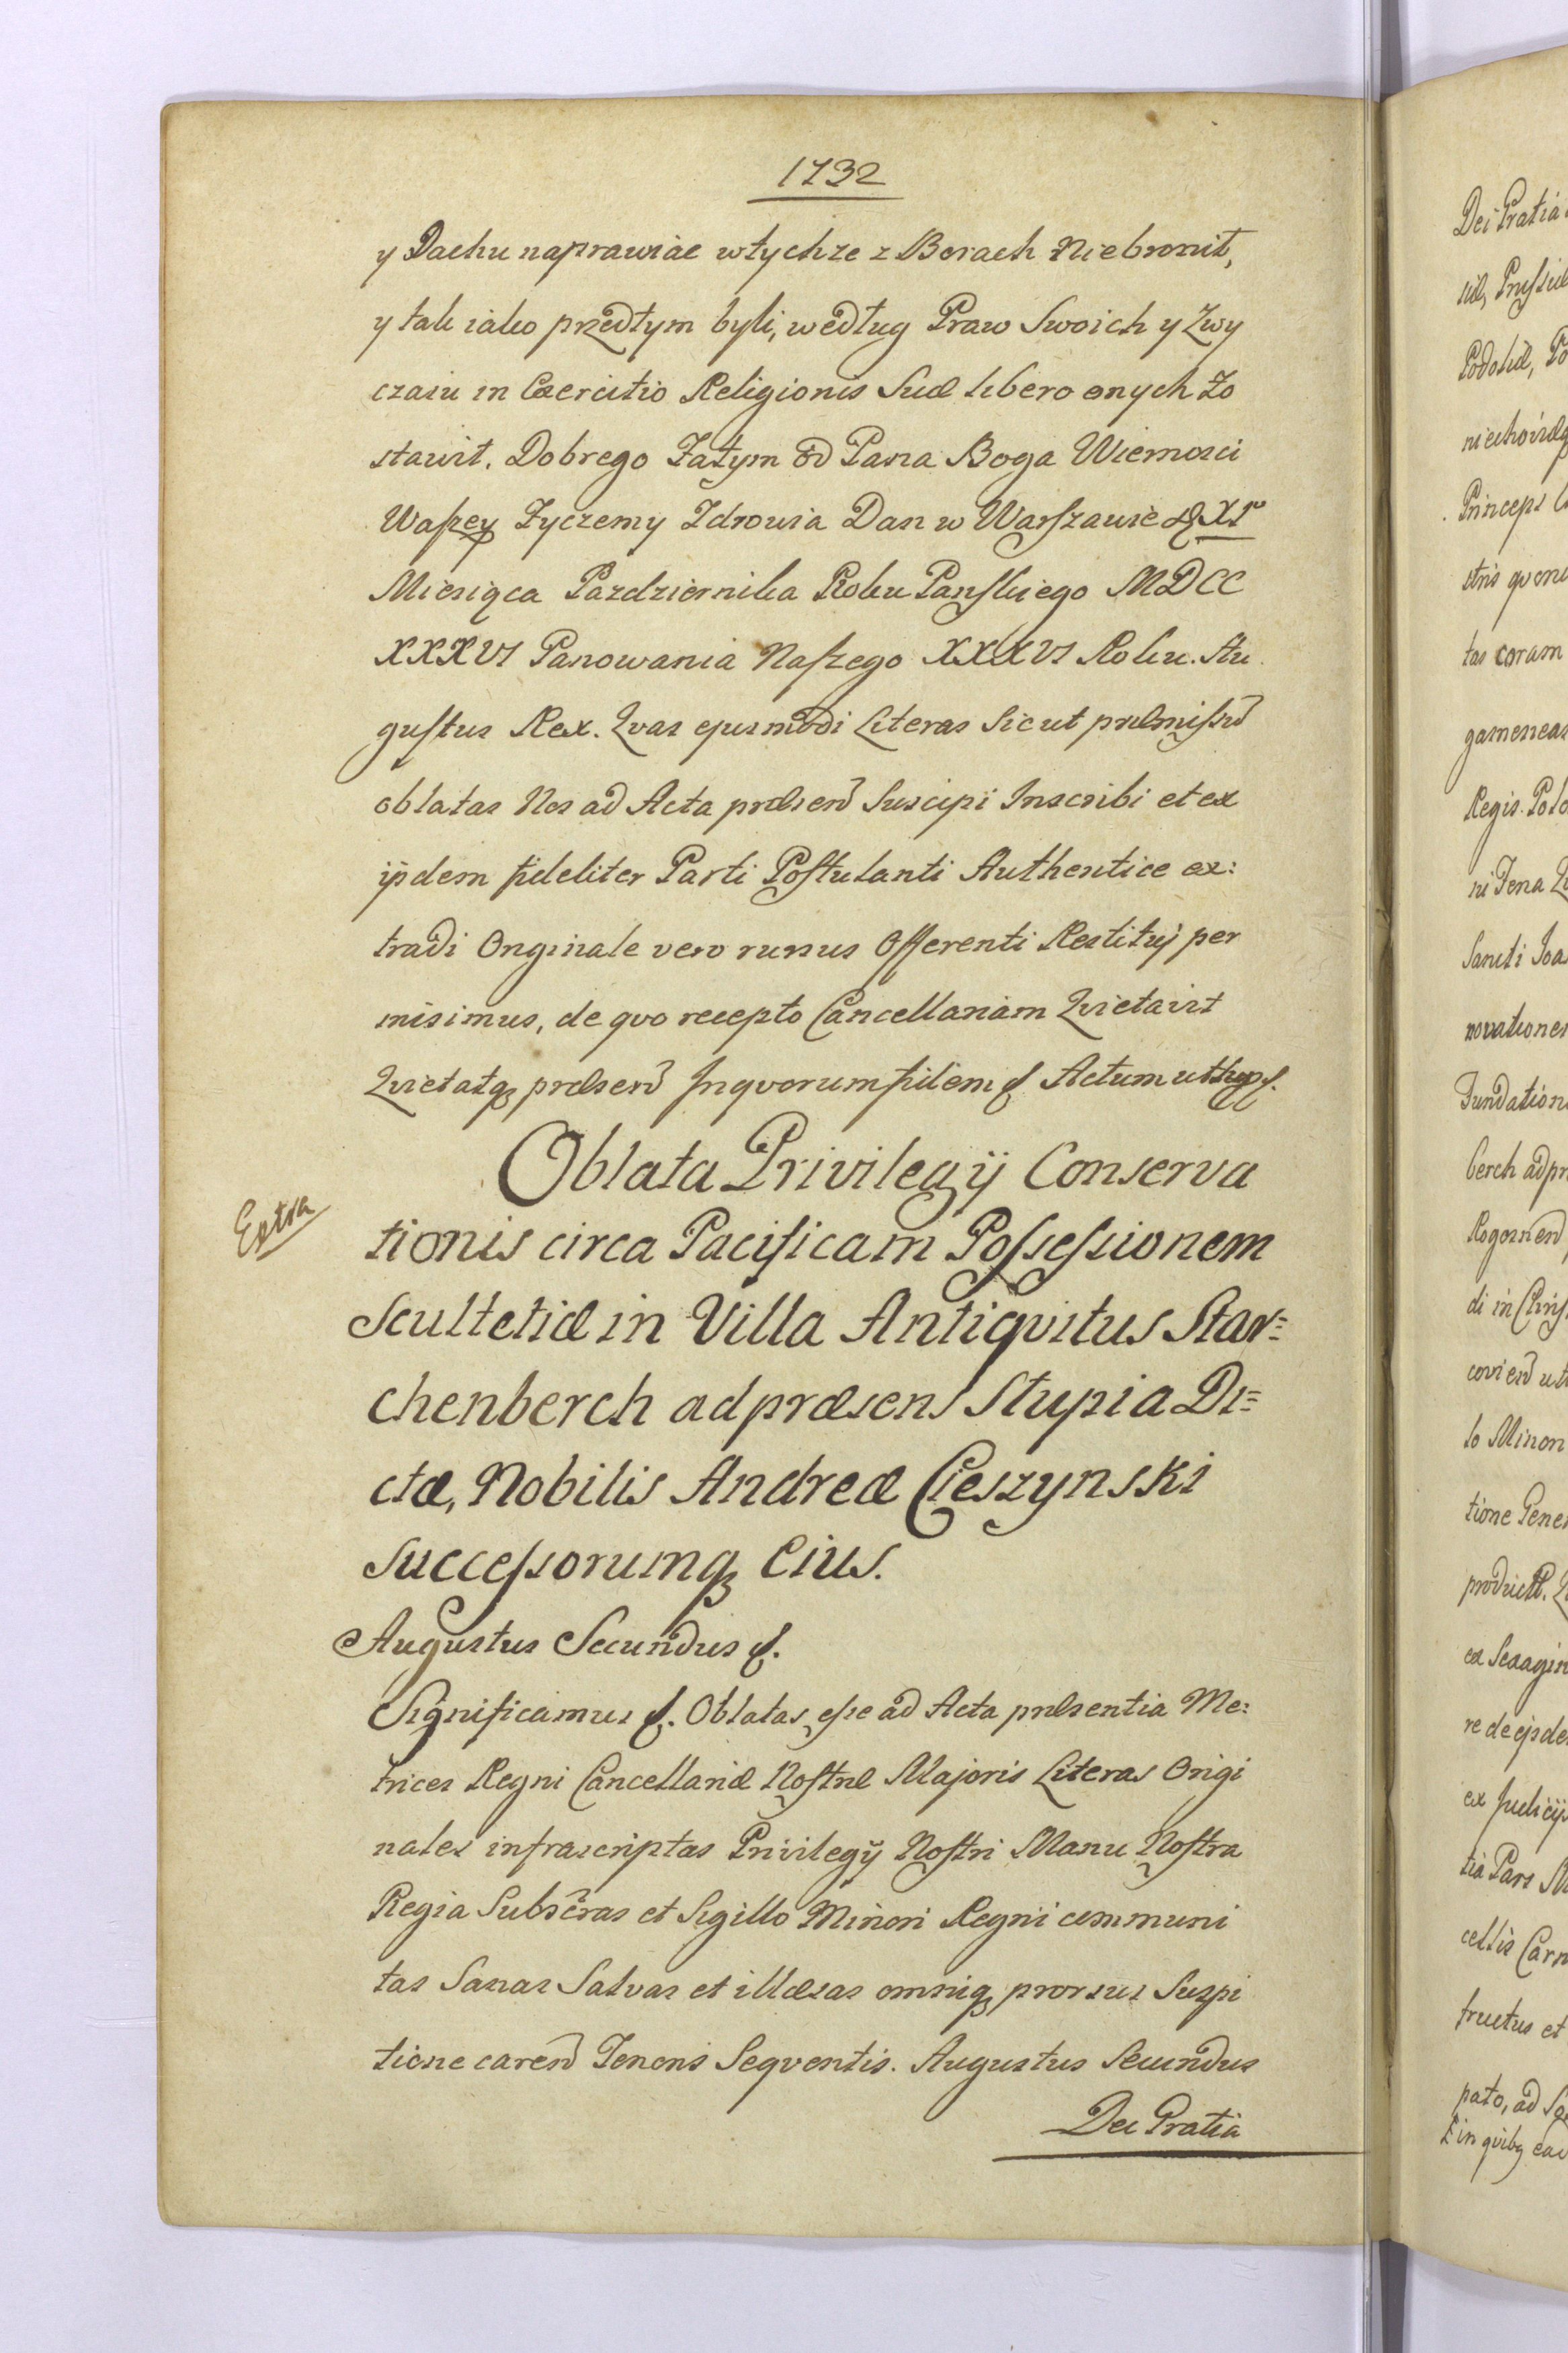 1732
y Dachu naprawiac wtychze z Borach Niebronił,
y tak iako przedtym byli, według Praw Swoich y Zwy
czaiu in Exercitio Religionis Suæ libero onych Zo
stawił. Dobrego Zatym od Pana Boga Wiernosci
Waszey Zyczemy Zdrowia Dan w Warszawie D. XI°
Miesiąca Pazdziernika Roku Panskiego MDCC
XXXVI Panowania Naszego XXXVI Roku. Au
gustus Rex. Qvas ejusmodi Literas Sicut præmissũ
oblatas Nos ad Acta præsenđ Suscipi Inscribi et ex
ijsdem fideliter Parti Postulanti Authentice ex:
tradi Originale vero rursus Offerenti Restituj per
misimus, de qvo recepto Cancellariam Qvietavit
Qvietatq præsenđ Inqvorum fidem &. Actum ut Supr.
Oblata Privilegij Conserva
tionis circa Pacificam Possessionem
Scultetiæ in Villa Antiqvitus Star=
chenberch ad præsens Stupia Di=
ctæ, Nobilis Andreæ Cieszynski
Successorumq Eius.
Extra
Augustus Secundus &.
Significamus &. Oblatas esse ad Acta præsentia Me:
trices Regni Cancellariæ Nostræ Majoris Literas Origi
nales infrascriptas Privilegij Nostri Manu Nostra
Regia Subscras et Sigillo Minori Regni communi
tas Sanas Salvas et illæsas omniq prorsus Suspi
tione carenđ Tenoris Seqventis. Augustus Secundus
Dei Gratia
Dei Gratia
niechoviæq
Princeps
tas coram
gameneas
Regis Polo
Sancti Joa
novationes
Fundation
berch ad pr
lo Minori
tione Gene
ex Sexagin
ex Judicijs
tia Pars
cellis
fructus et
pato, ad